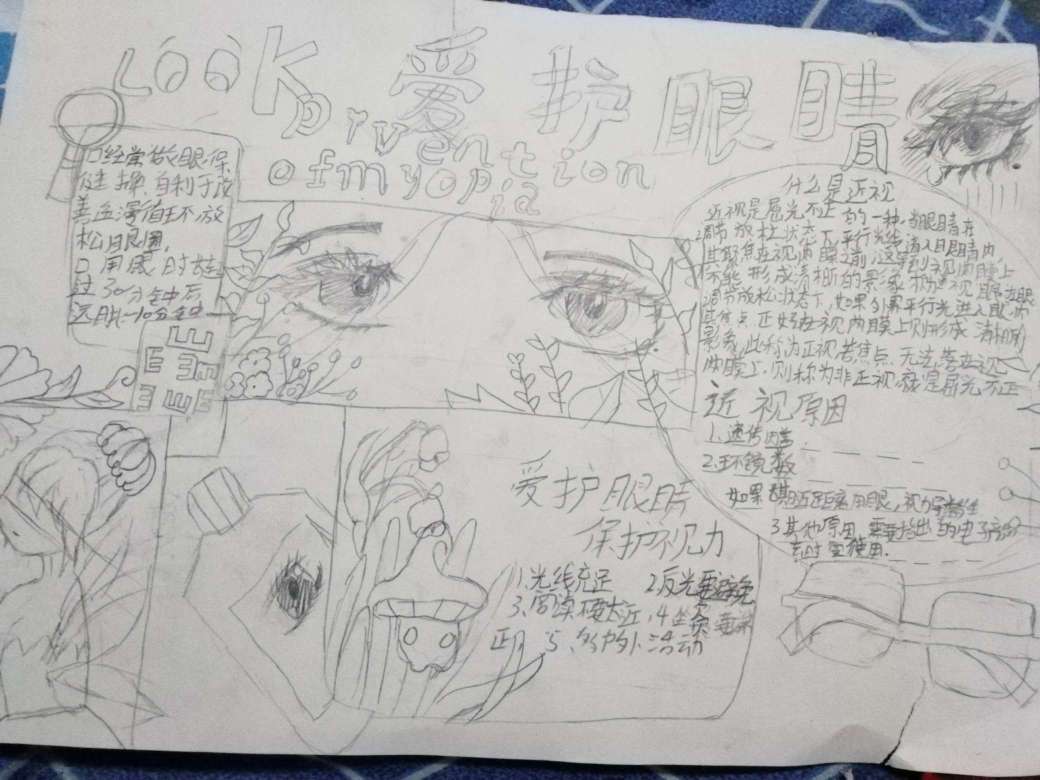 LOOK 爱护眼睛
prvention
ofmyopia
口经常做眼保
健操,有利于改
善血液循环放
松眼周,
口用眼时超
过30分钟后
远眺10分钟
什么是近视
近视是屈光不正的一种,当眼睛在
调节放松状态下平行光线进入眼睛内,
其聚焦在视网膜之前,这导致视网膜上
不能形成清晰的影像称近视眼
调节放松状态下,如果外界平行光进入眼内
其焦点正好在视网膜上则形成清晰的
影像,此称为正视若焦点无法落在视
网膜上,则称为非正视,就是屈光不正
近视原因
1.遗传因素
2.环境
如果长期近距离用眼,视力
3.其他原因,需要指出的电子产品
长时间使用.
爱护眼睛
保护视力
1.光线充足 2.反光要避免
3、阅读不要太近,4坐姿要
正,5、多户外活动
E E 3 m
E 3 w E